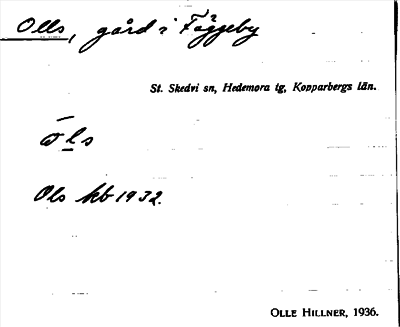 Olls, gård i Fåggeby
St. Skedvi sn, Hedemora tg, Kopparbergs län.
ōls
Ols kb 1932.
OLLE HILLNER, 1936.